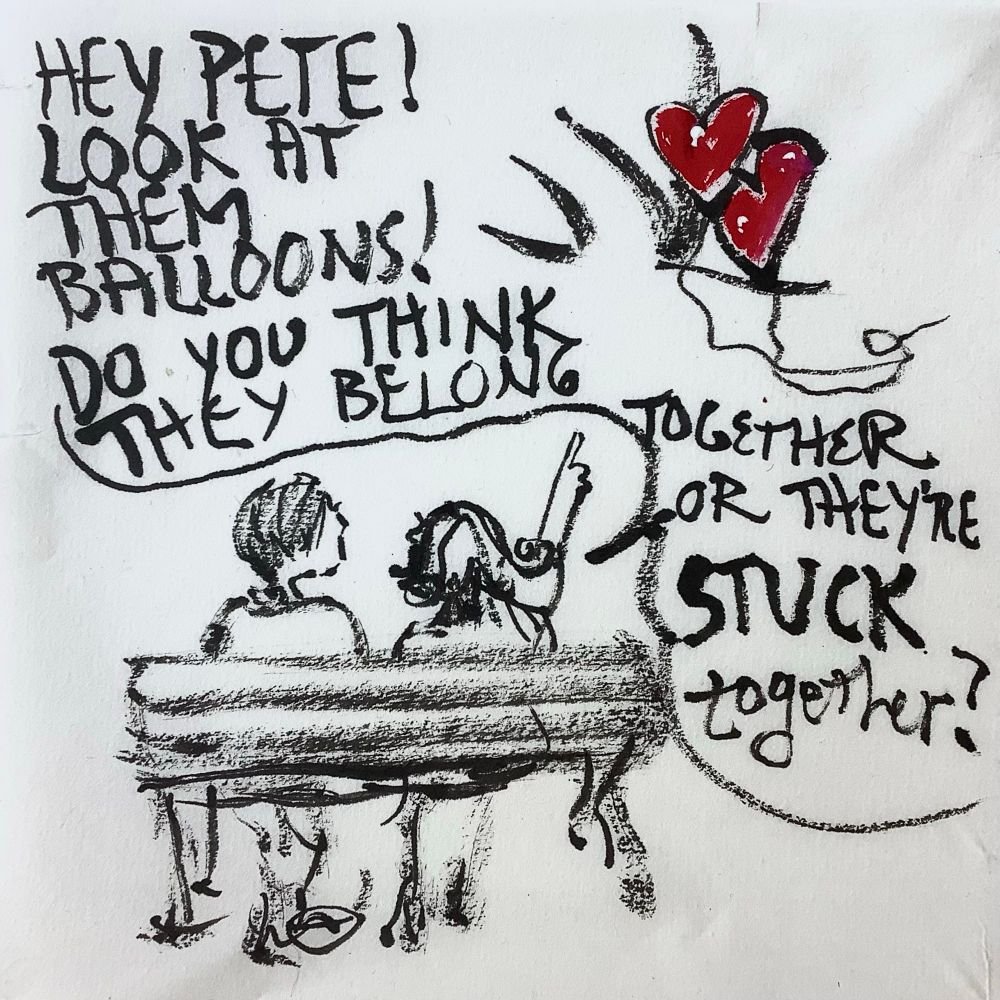 HEY PETE!
LOOK AT
THEM
BALLOONS!
DO YOU THINK
THEY BELONG
TOGETHER
OR THEY'RE
STUCK
together?